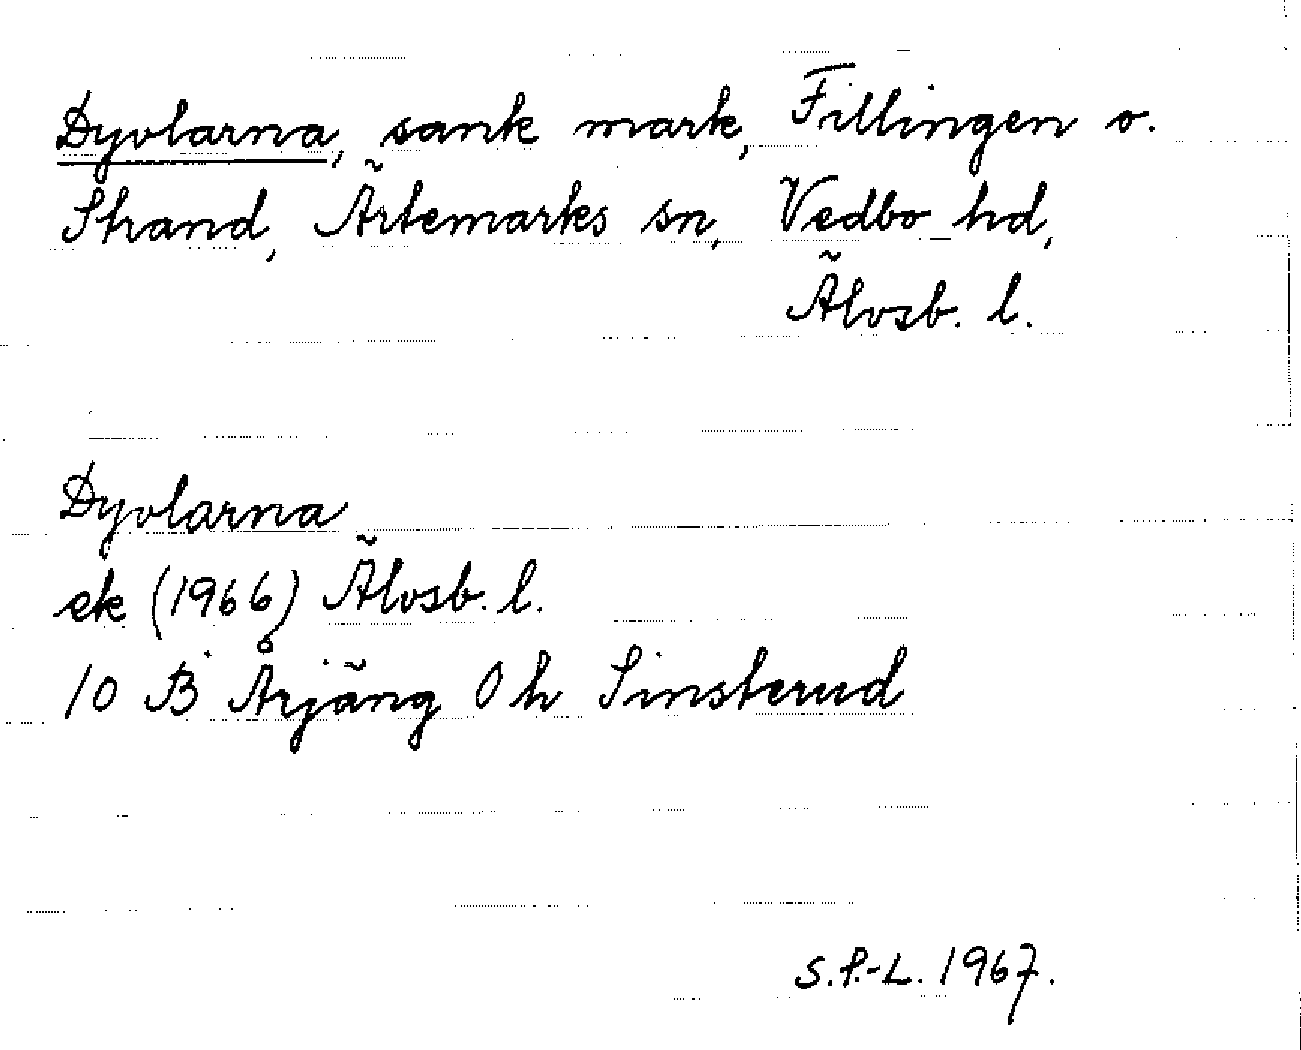 Dyvlarna, sank mark, Fillingen o.
Strand, Ärtemarks sn, Vedbo hd,
Älvsb. l.
Dyvlarna
ek (1966) Älvsb. l.
10 B Årjäng 0 h Sinsterud
S.P.-L. 1967.